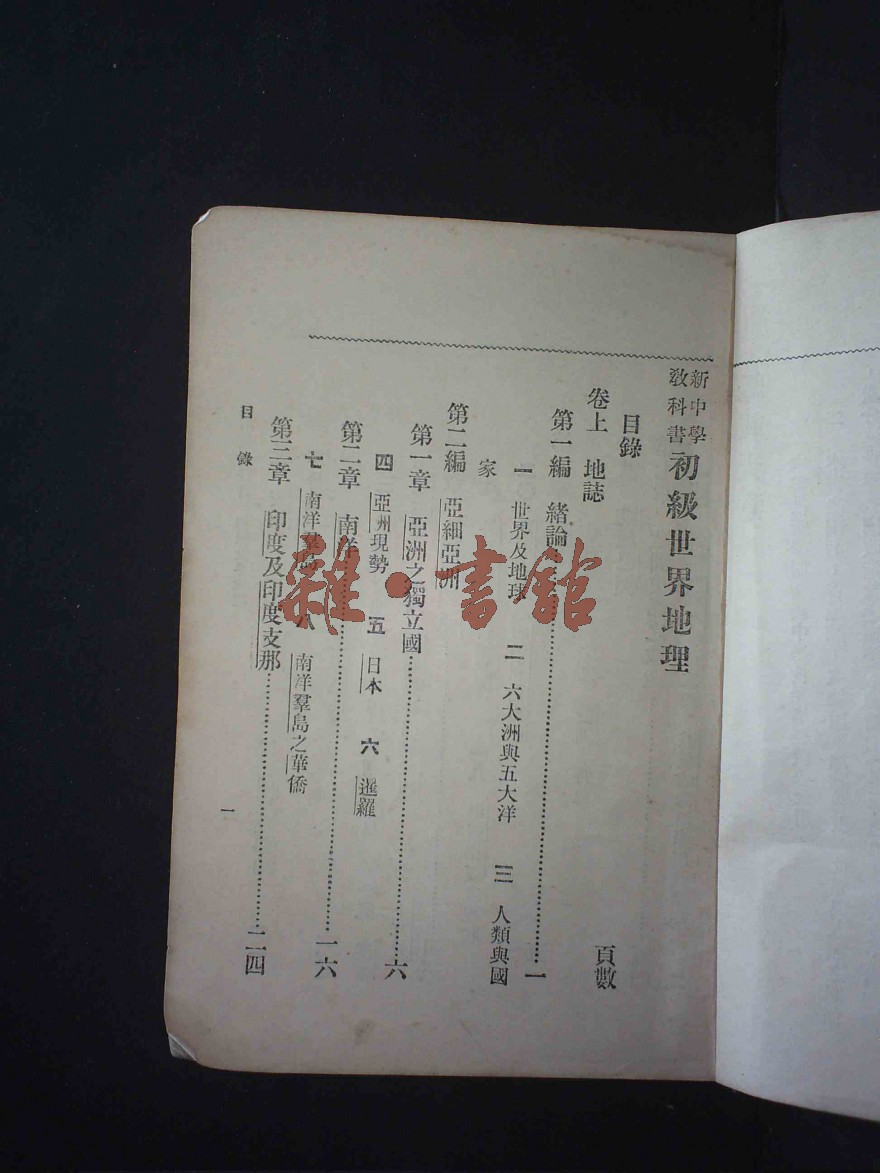 新中學
教科書 初級世界地理
目錄 頁數
卷上 地誌
第一編 緒論……一
一 世界及地球 二 六大洲與五大洋 三 人類與國
家
第二編 亞細亞洲
第一章 亞洲之獨立國……六
四 亞州現勢 五 日本 六 暹羅
第二章 南洋……一六
七 南洋羣島 八 南洋羣島之華僑
第三章 印度及印度支那……二四
目錄 一
雜·書館